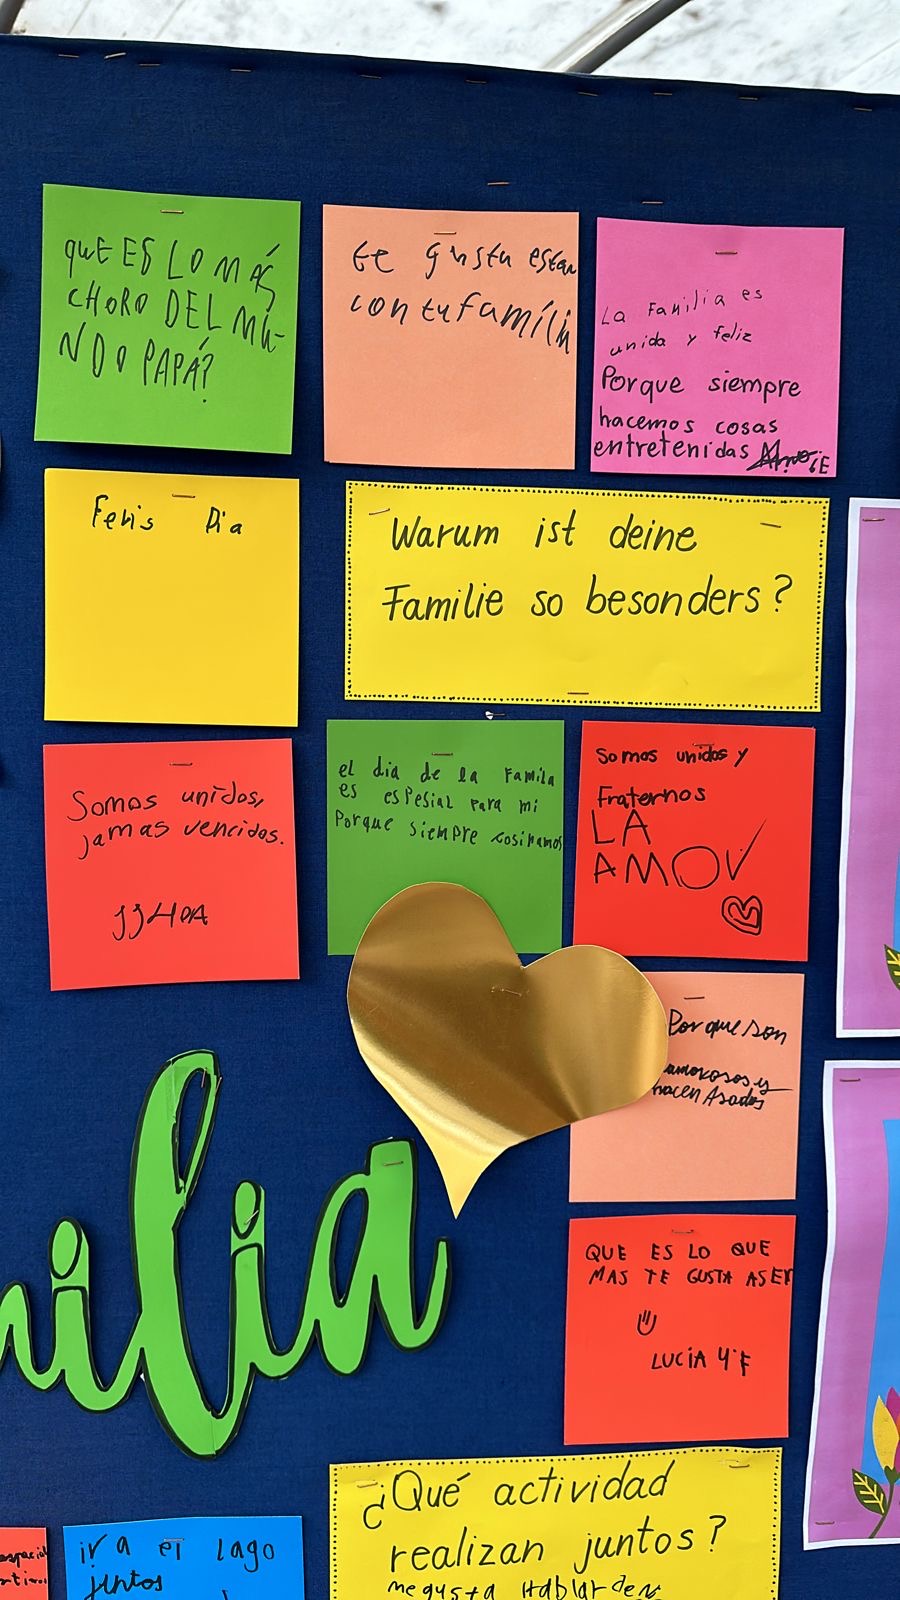 quE ES LO MÁS
CHORO DEL MU-
NDO PAPÁ?
te gusta estar
con tu família
La Familia es
unida y feliz
Porque siempre
hacemos cosas
entretenidas
Felis Dia
Warum ist deine
Familie so besonders?
Somos unidos,
jamas vencidos.
el dia de la Famila
es espesial para mi
Porque siempre cosinamos
Somos unidos y
Fraternos
LA
AMOV
Por que son
amorosos y
hacen Asados
QUE ES LO QUE
MAS TE GUSTA ASER
LUCIA 4°F
ilia
¿Qué actividad
realizan juntos?
me gusta Hablar de
ir a el lago
juntos